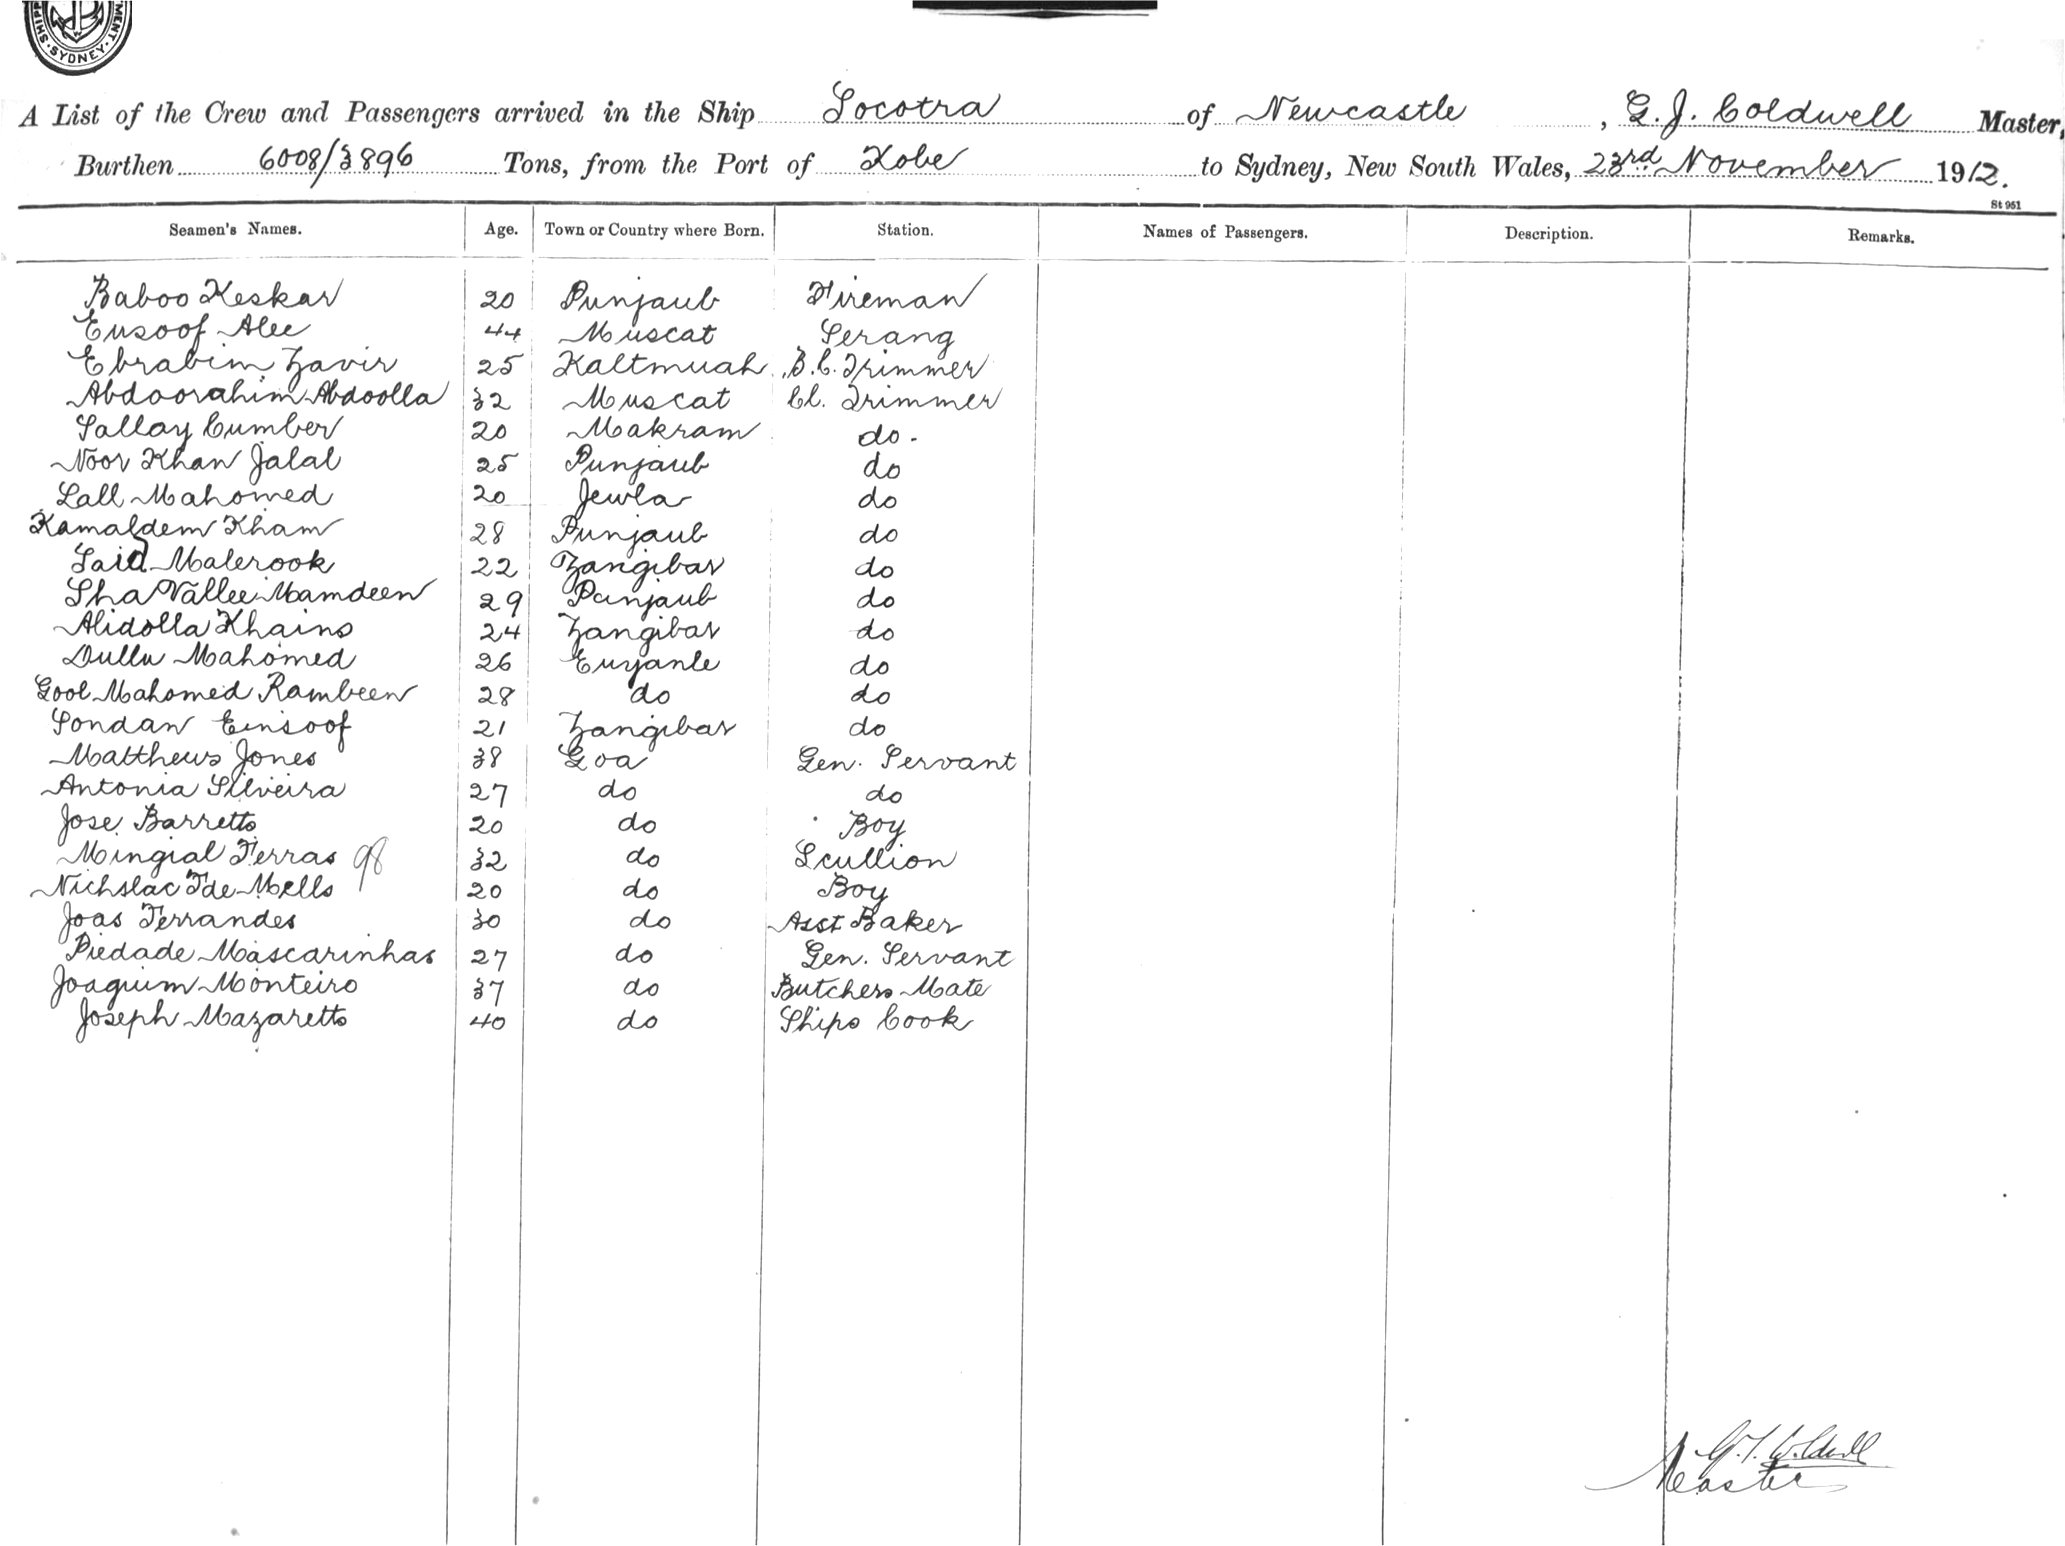 SHIPPING MENT SYDNEY
A List of the Crew and Passengers arrived in the Ship Socotra of Newcastle, G. J. Coldwell Master,
Burthen 6008/3896 Tons, from the Port of Kobe to Sydney, New South Wales, 23rd November 1912.
St 951
Seamen's Names. Age. Town or Country where Born. Station. Names of Passengers. Description. Remarks.
Baboo Keskar 20 Punjaub Fireman
Eusoof Alee 44 Muscat Serang
Ebrabim Zavir 25 Kaltmuah B.C. Trimmer
Abdoorahim Abdoolla 32 Muscat Cl. Trimmer
Sallay Cumber 20 Makram do.
Noor Khan Jalal 25 Punjaub do
Lall Mahomed 20 Jewla do
Kamaldem Kham 28 Punjaub do
Said Malerook 22 Zangibar do
Sha Vallee Mamdeen 29 Punjaub do
Alidolla Khains 24 Zangibar do
Dullu Mahomed 26 Euyanle do
Gool Mahomed Rambeen 28 do do
Sondan Einsoof 21 Zangibar do
Matthews Jones 38 Goa Gen. Servant
Antonia Silveira 27 do do
Jose Barretto 20 do Boy
Mingial Ferras 98 32 do Scullion
Nichslac F de Mello 20 do Boy
Joas Ferrandes 30 do Asst Baker
Piedade Mascarinhas 27 do Gen. Servant
Joaquim Monteiro 37 do Butchers Mate
Joseph Mazaretto 40 do Ships Cook
G. J. Coldwell
Master